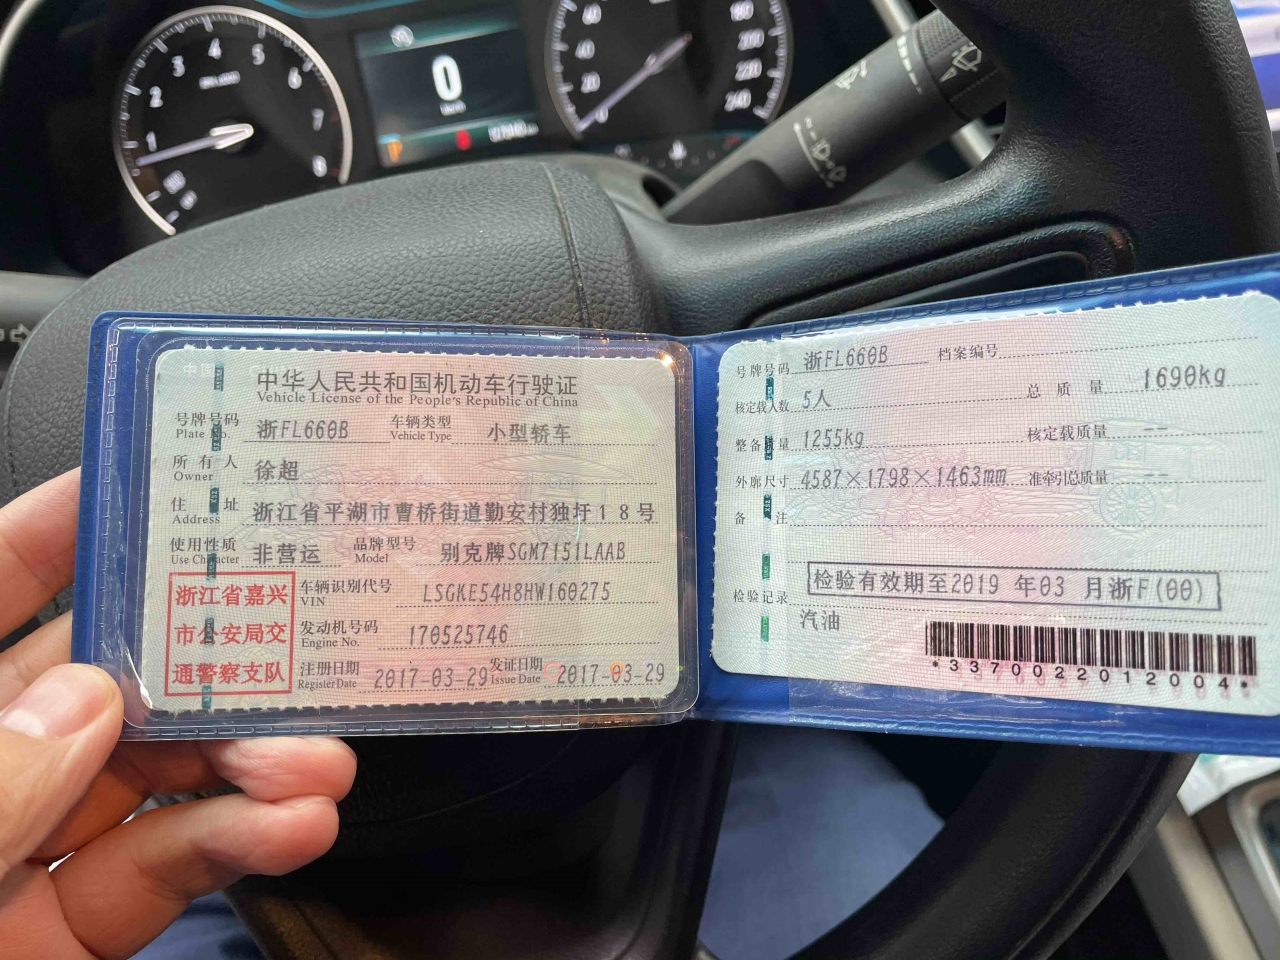 1
2
3
4
5
6
7
8
0
0
20
40
60
180
200
220
240
中华人民共和国机动车行驶证
Vehicle License of the People's Republic of China
号牌号码 浙FL660B 车辆类型 小型轿车
Plate No. Vehicle Type
所有人 徐超
Owner
住址 浙江省平湖市曹桥街道勤安村独圩18号
Address
使用性质 非营运 品牌型号 别克牌SGM7151LAAB
Use Character Model
浙江省嘉兴
市公安局交
通警察支队
车辆识别代号 LSGKE54H8HW160275
VIN
发动机号码 170525746
Engine No.
注册日期 2017-03-29 发证日期 2017-03-29
Register Date Issue Date
号牌号码 浙FL660B 档案编号
核定载人数 5人 总质量 1690kg
整备质量 1255kg 核定载质量 --
外廓尺寸 4587×1798×1463mm 准牵引总质量 --
备注
检验有效期至2019年03月浙F(00)
检验记录
汽油
*3370022012004*